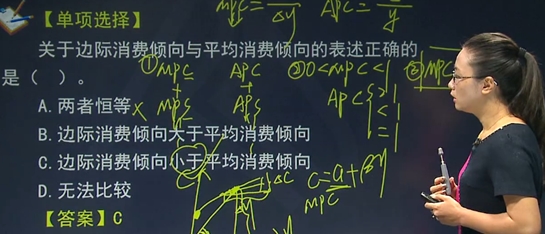 MPC = ─/ΔY APC = ─/y
【单项选择】
关于边际消费倾向与平均消费倾向的表述正确的
是（ ）。
① MPC APC ② 0<MPC<1 ③ MPC
+ +
A.两者恒等 × MPS APS APC { >1 <1 =1
B.边际消费倾向大于平均消费倾向
C.边际消费倾向小于平均消费倾向
c=a+βy
MPC
D.无法比较
【答案】C